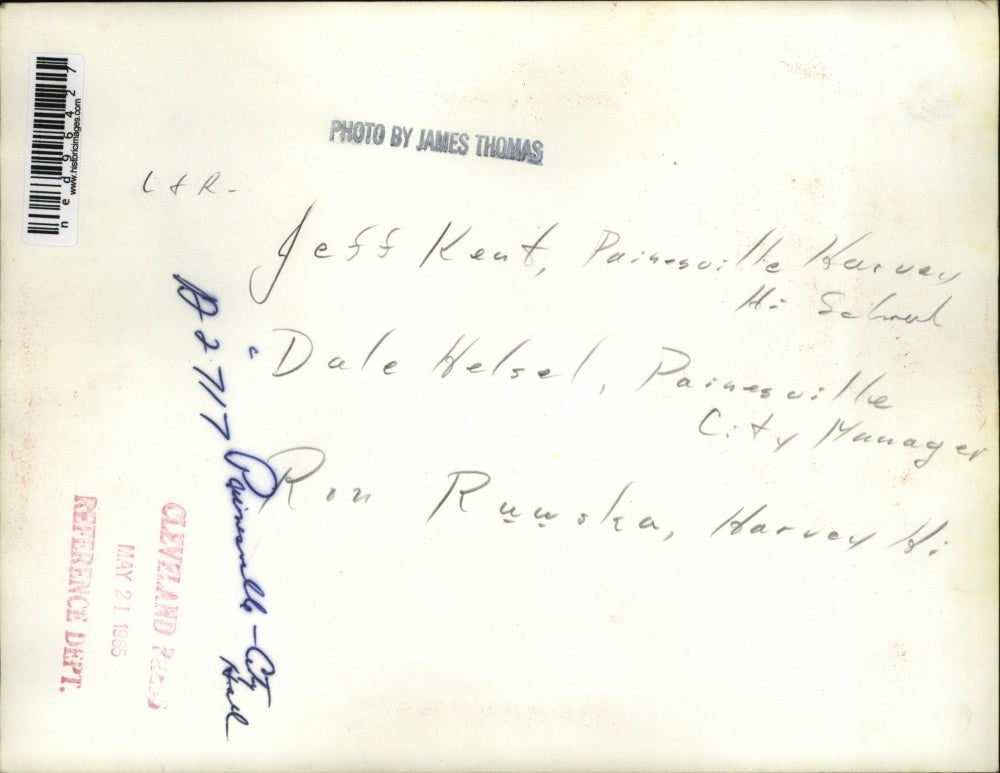 PHOTO BY JAMES THOMAS
L & R-
Jeff Kent, Painesville Harvey
Hi School
Dale Helsel, Painesville
City Manager
Ron Ruuska, Harvey Hi
A 2717 Painesville - City
Hall
CLEVELAND PRESS
MAY 21 1965
REFERENCE DEPT.
ned96427
www.historicimages.com